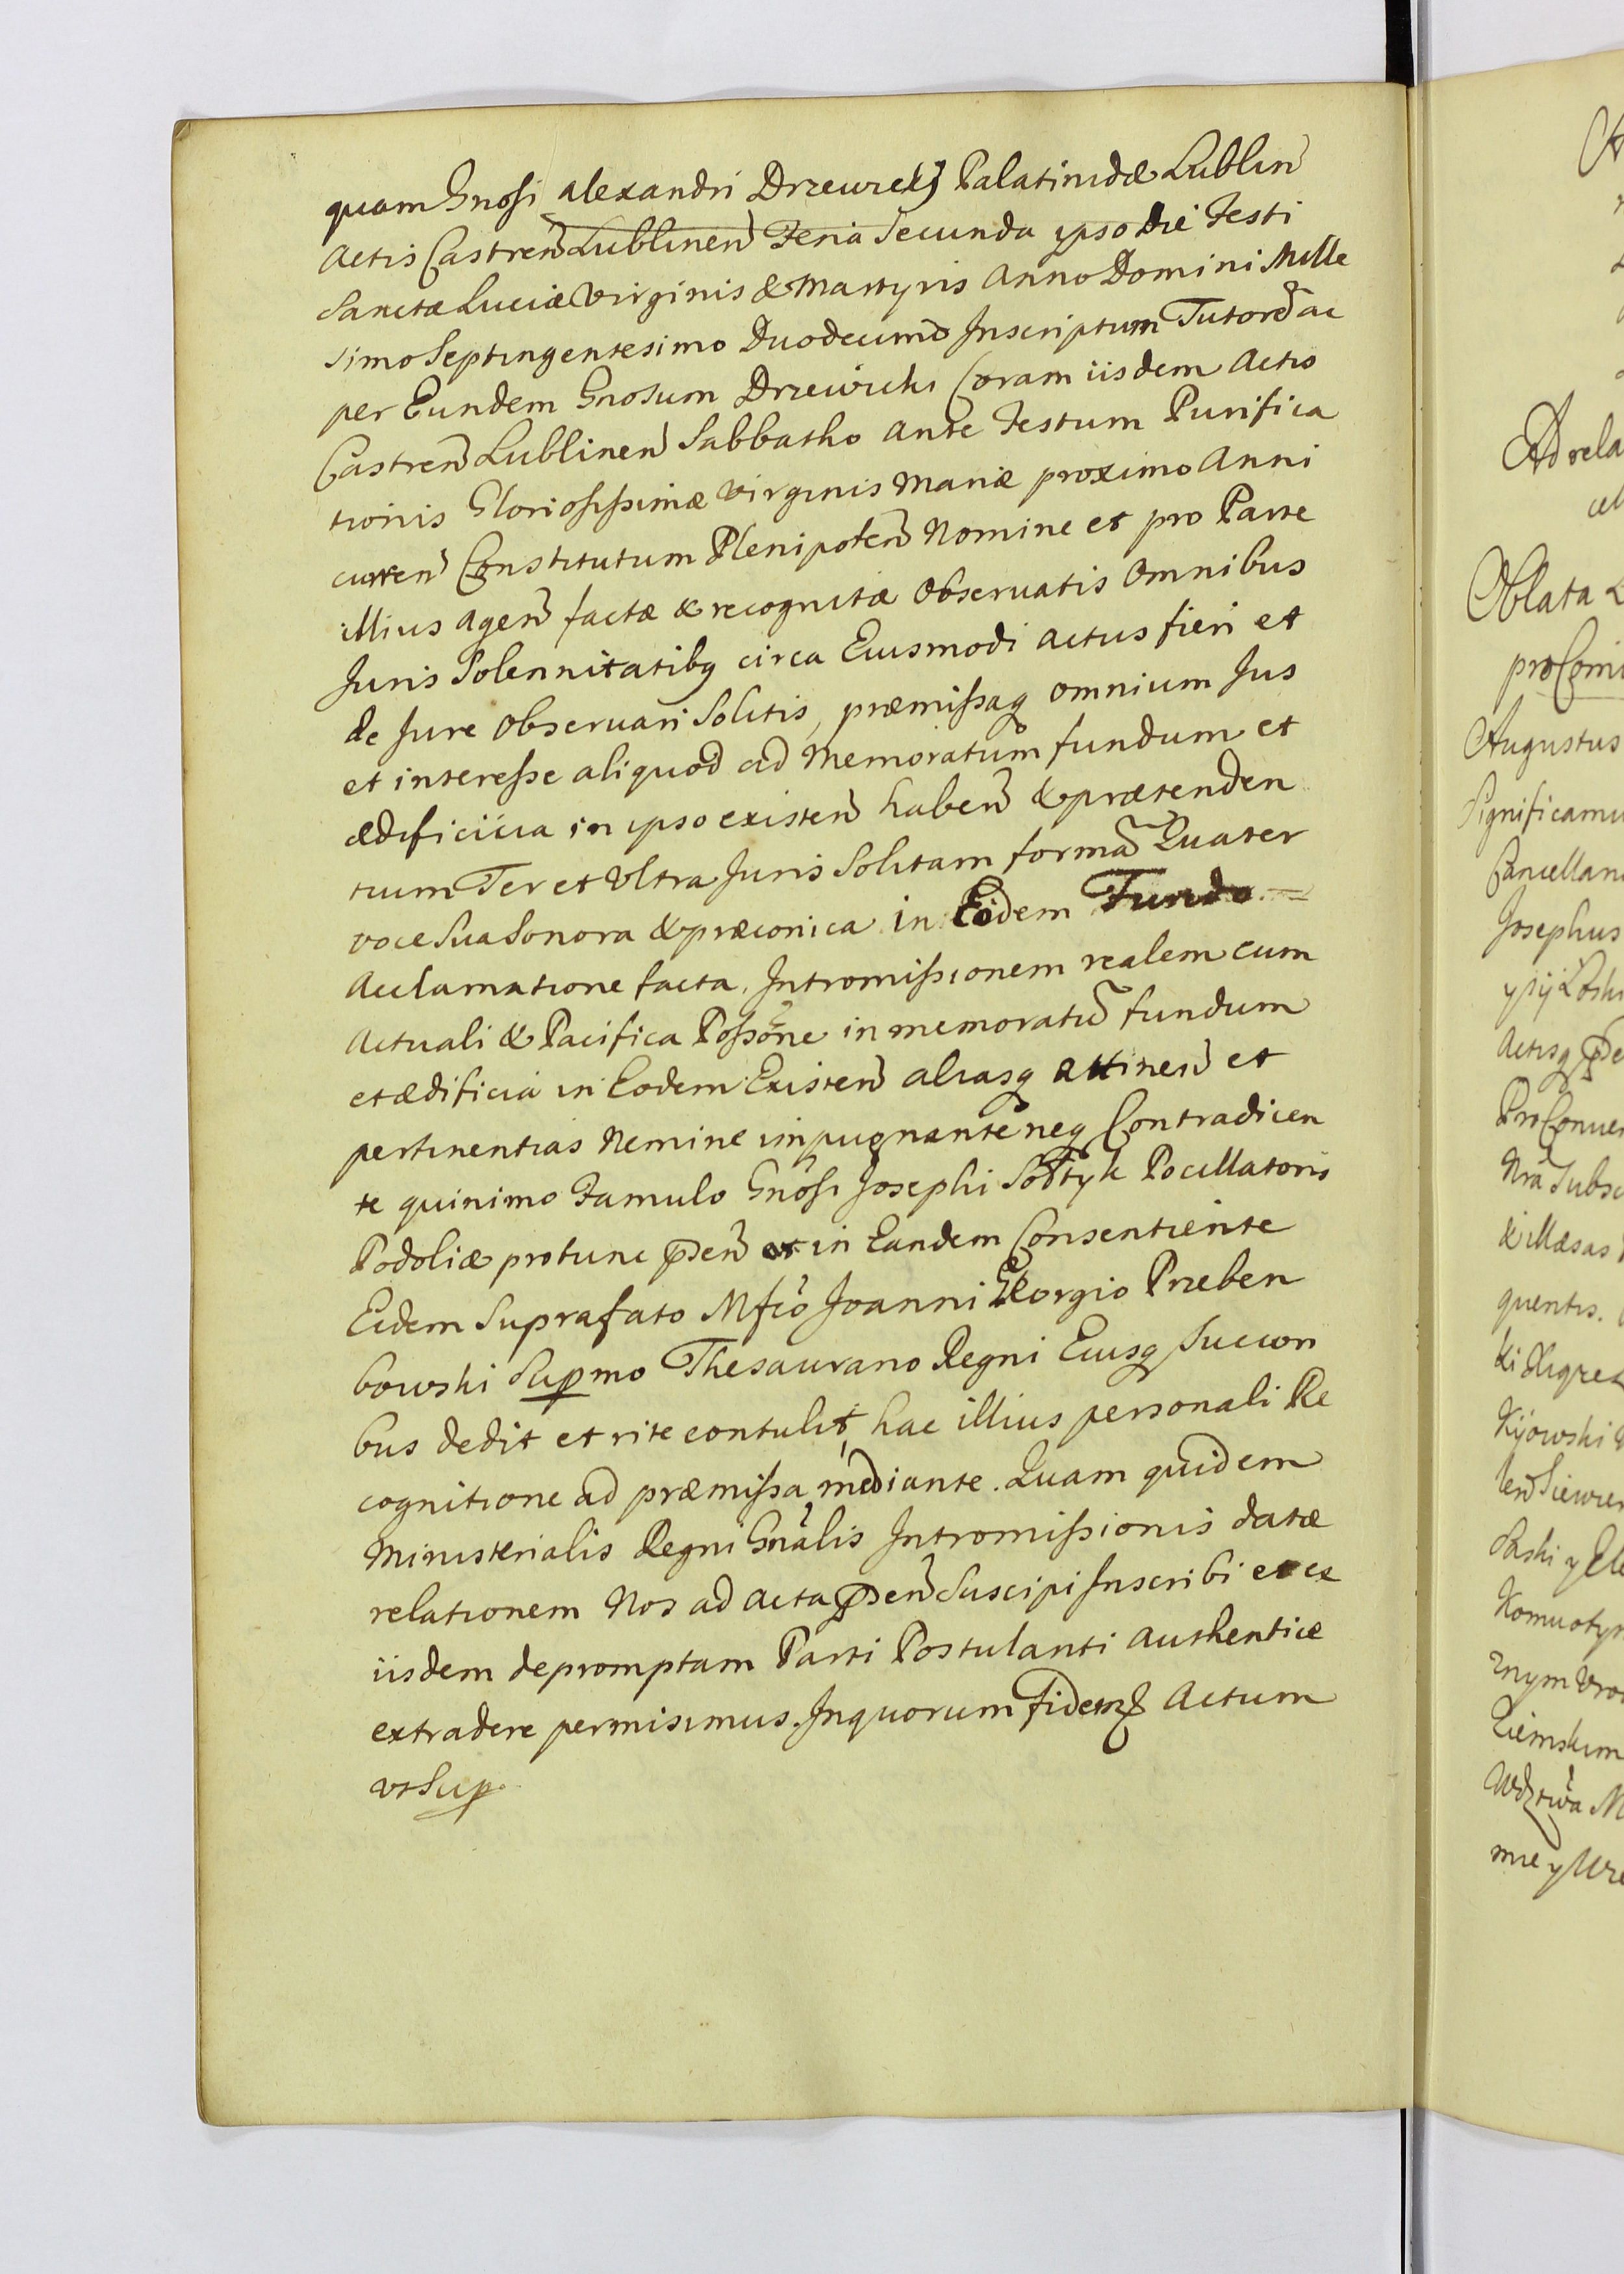 quam Gnosi Alexandri Drzewickj Palatinidæ Lublin
Actis Castren Lublinen Feria Secunda ipso die Festi
Sanctæ Luciæ Virginis & Martyris Anno Domini Mille
simo Septingentesimo Duodecimo Inscriptum Tutore ac
per Eundem Gnosum Drzewicki Coram iisdem Actis
Castren Lublinen Sabbatho Ante Festum Purifica
tionis Gloriosissimæ Virginis Mariæ proximo Anni
curren Constitutum Plenipoten Nomine et pro Parte
illius Agen factæ & recognitæ Observatis Omnibus
Juris Solennitatibq circa Eiusmodi actus fieri et
de Jure Observari Solitis, præmissaq omnium Jus
et interesse aliquod ad Memoratum fundum et
ædificiia in ipso existen haben & prætenden
tium Ter et Ultra Juris Solitam forma Quater
voce Sua Sonora & præconica in Eodem Fundo =
Acclamatione facta, Intromissionem realem cum
Actuali & Pacifica Possone in memoratu fundum
et ædificia in Eodem Existen aliasq attinen et
pertinentias Nemine impugnante neq Contradicen
te quinimo Famulo Gnosi Josephi Sołtyk Pocillatoris
Podoliæ protunc pden et in Eandem Consentiente
Eidem Suprafato Mfco Joanni Georgio Przeben
bowski Supmo Thesaurario Regni Eiusq Succon
bus dedit et rite contulit, hac illius personali Re
cognitione ad præmissa mediante. Quam quidem
Ministerialis Regni Gnalis Intromissionis datæ
relationem Nos ad acta pden Suscipi Inscribi et ex
iisdem depromptam Parti Postulanti authentice
extradere permisimus. In quorum fidem & Actum
vt Sup.
Ad rela
Oblata
Augustus
Significamu
Cancellari
Josephus
quentis.
Kijowski